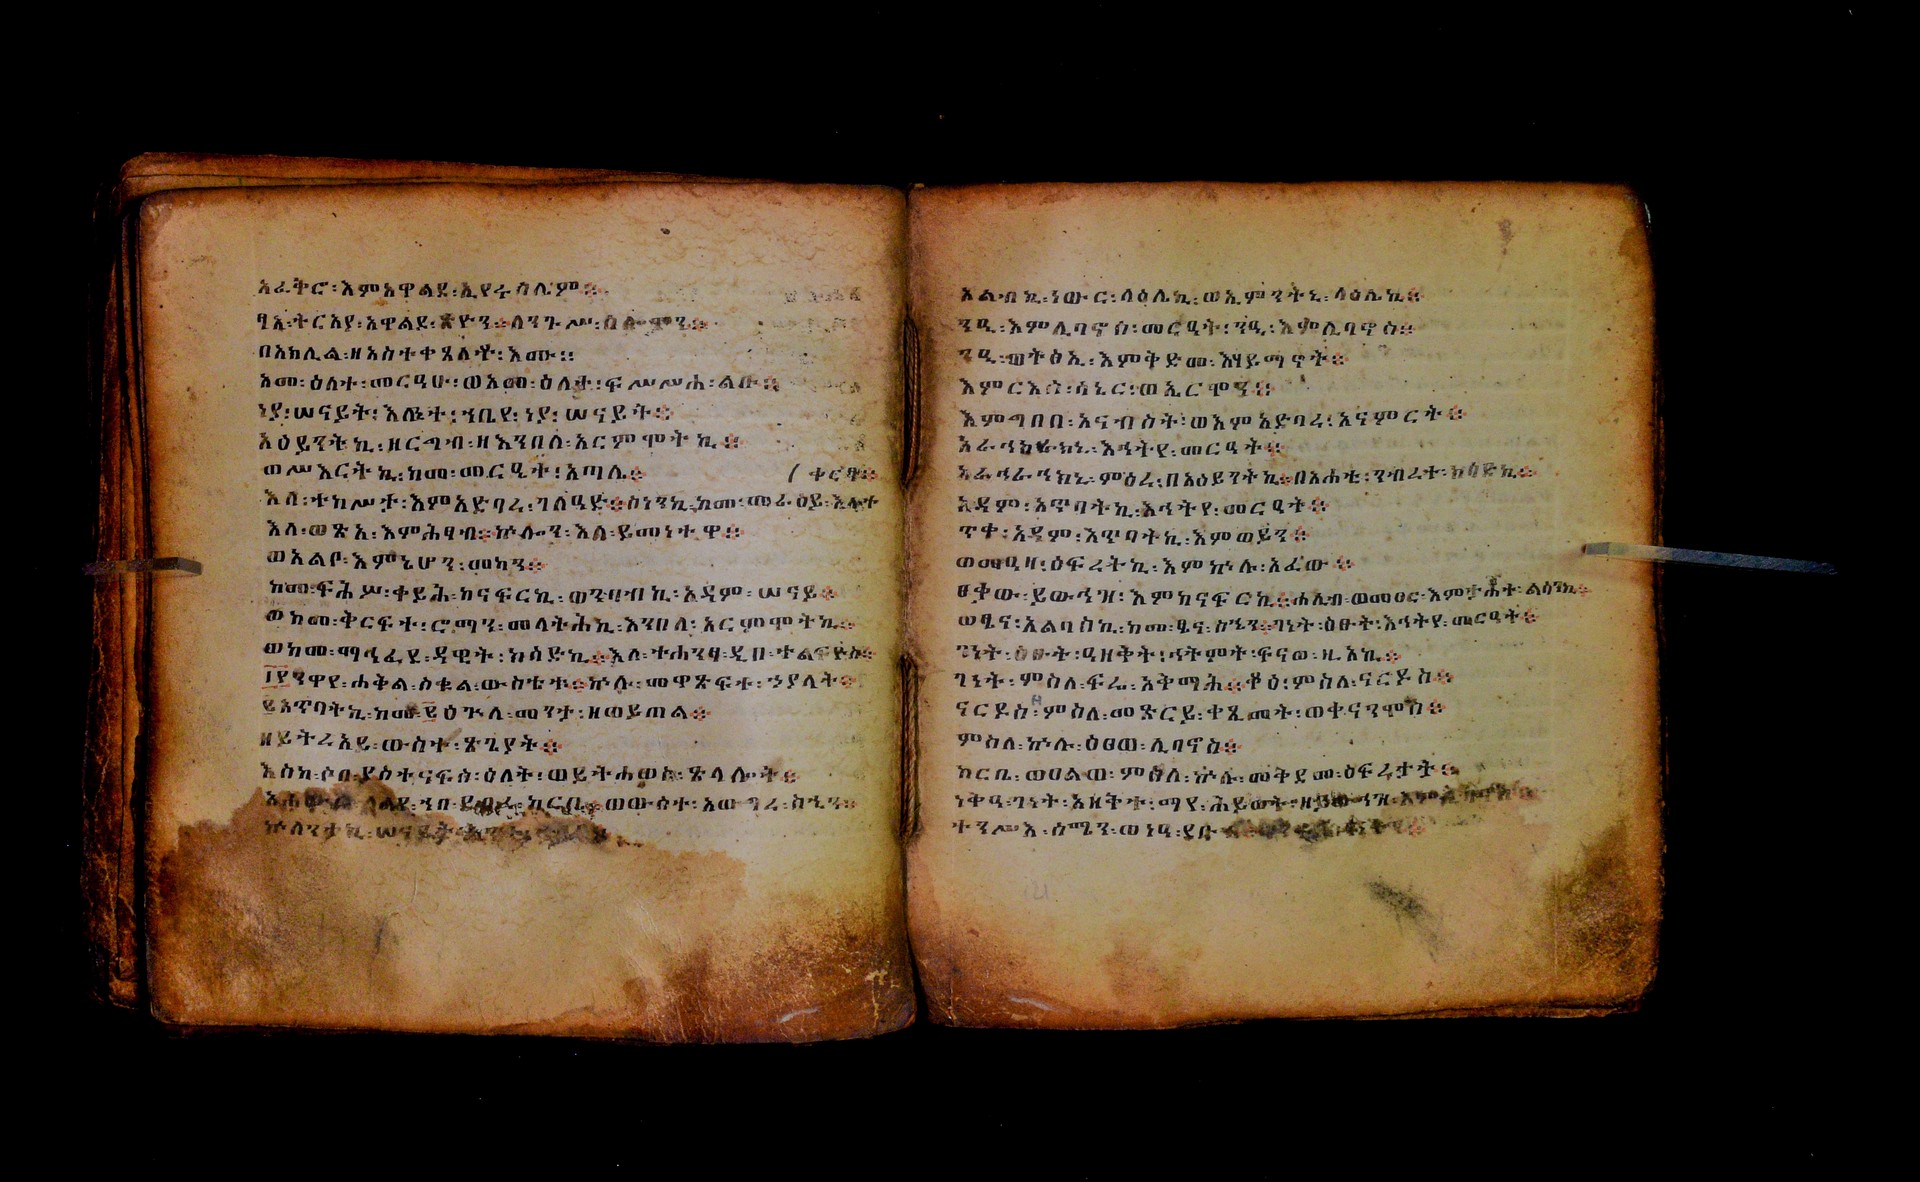 አፈትሮ፡እምአዋልደ፡ኢየሩሳሌም።
ፃኣ፡ትርአያ፡አዋልደ፡ጽዮን።ለንጉሥ፡ሰሎሞን።
በአክሊል፡ዘአስተቀጸለቶ፡እሙ።
አመ፡ዕለተ፡መርዓሁ፡ወአመ፡ዕለተ፡ፍሥሥሐ፡ልቡ።
ነያ፡ሠናይት፡እጐተ፡ኀቤየ፡ነያ፡ሠናይት።
አዕይንትኪ፡ዘርግብ፡ዘእንበለ፡አርምሞትኪ።
ወሥእርትኪ፡ከመ፡መርዔት፡አጣሊ።
እለ፡ተከሥታ፡እምአድባረ፡ገለዓድ።ስነንኪ፡ከመ፡መራዕይ፡እለተ
ቀርፃ።
እለ፡ወጽአ፡እምሕፃብ።ኵሎን፡እለ፡ይመነተዋ።
ወአልቦ፡እምኔሆን፡መካን።
ከመ፡ፍሕሥ፡ቀይሕ፡ከናፍርኪ፡ወንባብኪ፡አዳም፡ሠናይ።
ወከመ፡ቅርፍተ፡ሮማን፡መላትሕኪ፡እንበለ፡አርምሞትኪ።
ወከመ፡ማኅፈደ፡ዳዊት፡ክሳድኪ።እለ፡ተሐንፃ፡ዲበ፡ተልፍዮስ።
፲፻ዋየ፡ሐቅል፡ስቁል፡ውስቴቱ።ኵሉ፡መዋጽፍተ፡ኃያላት።
፪አጥባትኪ፡ከመ፡፪ዕጕለ፡መንታ፡ዘወይጠል።
ዘይትረአይ፡ውስተ፡ጽጌያት።
እስከ፡ሶበ፡ያስተናፍስ፡ዕለት፡ወይትሐወስ፡ጽላሎት።
ኵለንታኪ፡ሠናይት
አልብኪ፡ነውር፡ላዕሌኪ፡ወኢምንትኒ፡ላዕሌኪ።
ንዒ፡እምሊባኖስ፡መርዓት፡ንዒ፡እምሊባኖስ።
ንዒ፡ወትፅኢ፡እምቅድመ፡እሃይማኖት።
እምርእሰ፡ሳኔር፡ወኤርሞን።
እምግበበ፡አናብስት፡ወእምአድባረ፡አናምርት።
አራኅራኅክኒ፡እኅትየ፡መርዓት።
አራኅራኅክኒ፡ምዕረ፡በአዕይንትኪ።በአሐቲ፡ንብረተ፡ክሳድኪ።
አዳም፡አጥባትኪ፡እኅትየ፡መርዓት።
ጥቀ፡አዳም፡አጥባትኪ፡እምወይን።
ወመዓዛ፡ዕፍረትኪ፡እምኵሉ፡አፈው።
ፀቃው፡ይውኅዝ፡እምከናፍርኪ።ሐሊብ፡ወመዐር፡እምታሕተ፡ልሳንኪ።
ወፄና፡አልባስኪ፡ከመ፡ፄና፡ስኂን።ገነት፡ዕፁት፡እኅትየ፡መርዓት።
ገነት፡ዕፁት፡ዓዘቅት፡ኅትምት፡ፍናወ፡ዚአኪ።
ገነት፡ምስለ፡ፍሬ፡አቅማሕ።ቆዕ፡ምስለ፡ናርዶስ።
ናርዶስ፡ምስለ፡መጽርይ፡ቀጺመት፡ወቀናንሞስ።
ምስለ፡ኵሉ፡ዕፀወ፡ሊባኖስ።
ከርቤ፡ወዐልወ፡ምስለ፡ኵሉ፡መቅደመ፡ዕፍረታት።
ነቅዓ፡ገነት፡አዘቅተ፡ማየ፡ሕይወት፡ዘይውኅዝ፡እምሊባኖስ።
ተንሥእ፡ሰሜን፡ወነዓ፡ደቡብ